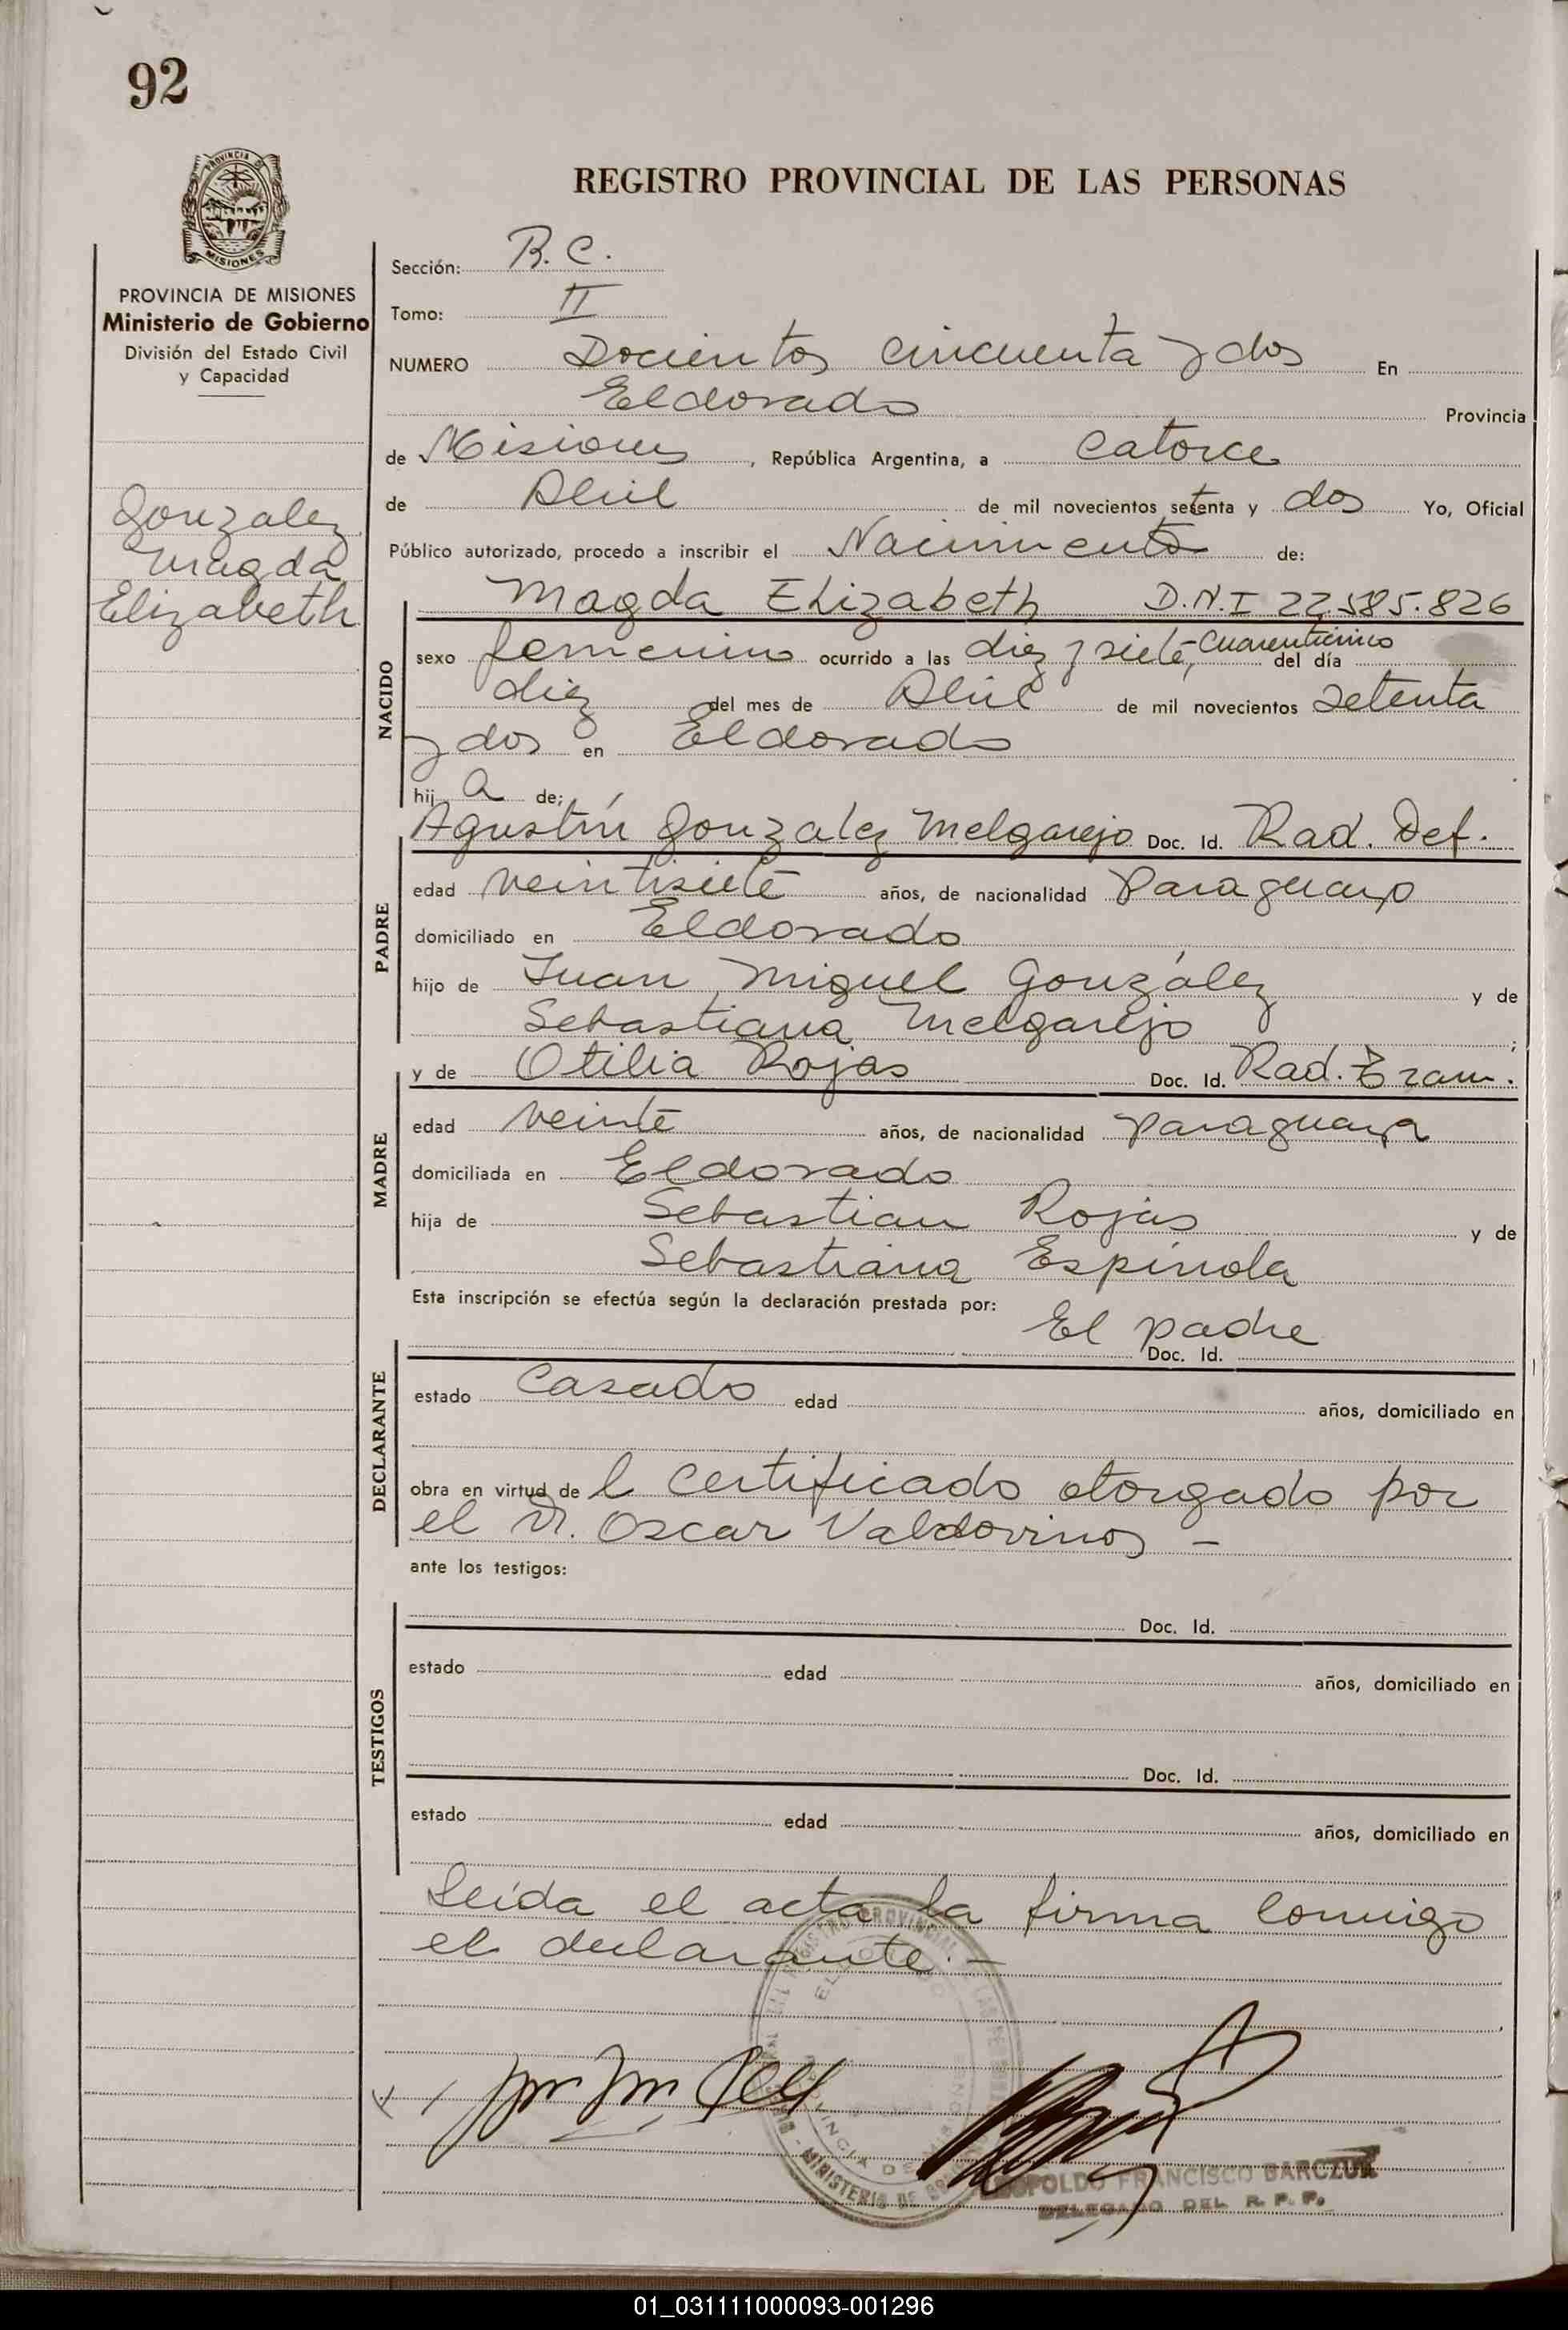 92
PROVINCIA DE
MISIONES
PROVINCIA DE MISIONES
Ministerio de Gobierno
División del Estado Civil
y Capacidad
Gonzalez
Magda
Elizabeth
REGISTRO PROVINCIAL DE LAS PERSONAS
Sección: R. C.
Tomo: II
NUMERO Docientos cincuenta y dos En
Eldorado Provincia
de Misiones, República Argentina, a catorce
de Abril de mil novecientos setenta y dos Yo, Oficial
Público autorizado, procedo a inscribir el Nacimiento de:
NACIDO
Magda Elizabeth D.N.I 22.585.826
sexo femenino ocurrido a las diez y siete, cuarenticinco del día
diez del mes de Abril de mil novecientos setenta
y dos en Eldorado
hij a de;
PADRE
Agustín Gonzalez Melgarejo Doc. Id. Rad. Def.
edad veintisiete años, de nacionalidad paraguayo
domiciliado en Eldorado
hijo de Juan Miguel González y de
Sebastiana Melgarejo ;
MADRE
y de Otilia Rojas Doc. Id. Rad. E tram.
edad veinte años, de nacionalidad paraguaya
domiciliada en Eldorado
hija de Sebastian Rojas y de
Sebastiana Espínola
Esta inscripción se efectúa según la declaración prestada por:
El padre
DECLARANTE
Doc. Id.
estado casado edad años, domiciliado en
obra en virtud de l certificado otorgado por
el Dr. Oscar Valdovinos -
ante los testigos:
TESTIGOS
Doc. Id.
estado edad años, domiciliado en
Doc. Id.
estado edad años, domiciliado en
Leída el acta la firma conmigo
el declarante. -
LEOPOLDO FRANCISCO BARCZUK
DELEGADO DEL R. P. P.
01_031111000093-001296